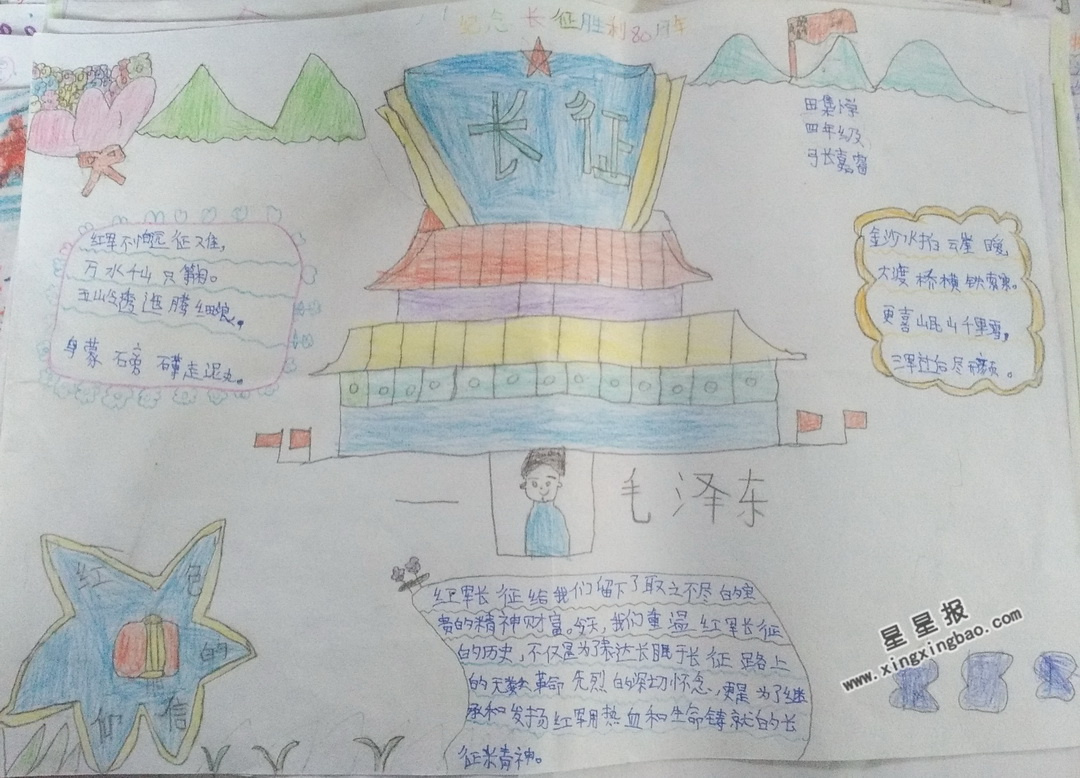 纪念长征胜利80周年
长征
田集小学
四年级
弓长嘉睿
红军不怕远征难,
万水千山只等闲。
五岭逶迤腾细浪,
乌蒙磅礴走泥丸。
金沙水拍云崖暖
大渡桥横铁索寒。
更喜岷山千里雪,
三军过后尽开颜。
毛泽东
红色的信仰
红军长征给我们留下了取之不尽的宝
贵的精神财富。今天,我们重温红军长征
的历史,不仅是为了表达长眠于长征路上
的无数革命先烈的深切怀念,更是为了继
承和发扬红军用热血和生命铸就的长
征精神。
星星报
www.xingxingbao.com